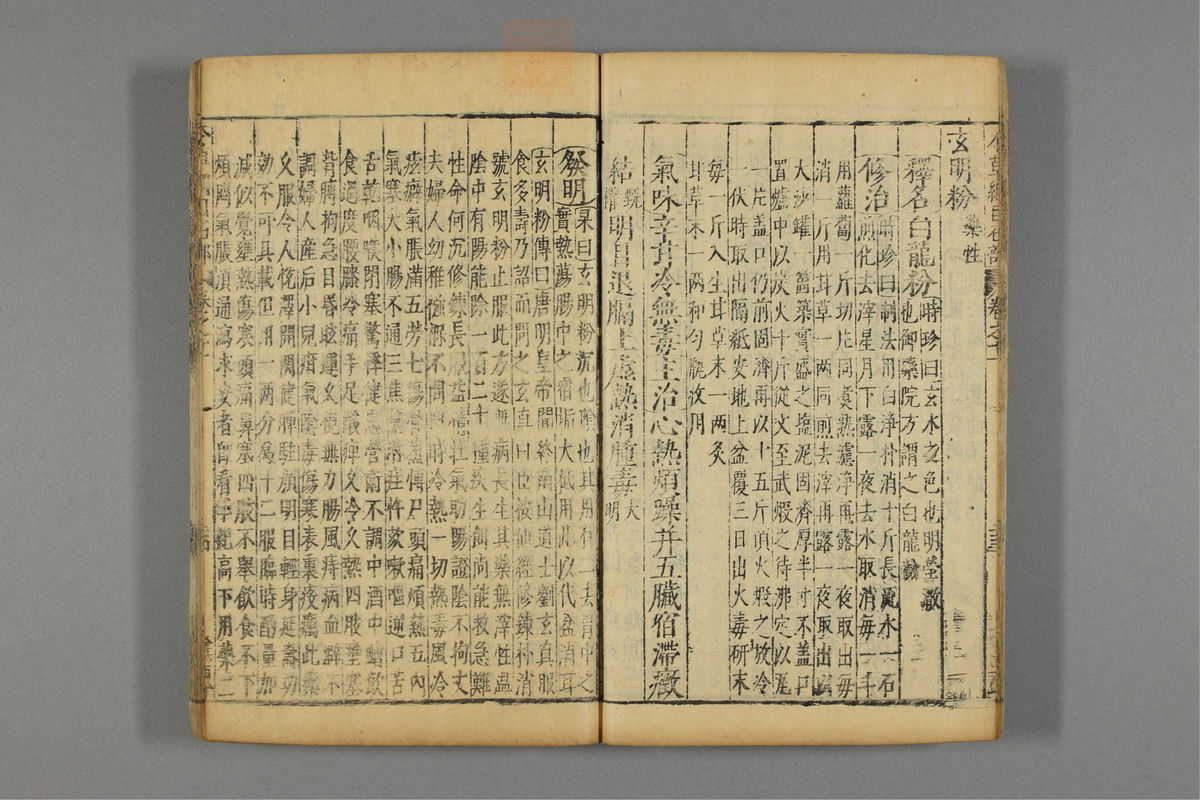 玄明粉藥性
釋名白龍粉時珍曰玄水之色也明瑩澈
也御藥院方謂之白龍粉
修治時珍曰制法用白淨朴消十斤長流水一石
煎化去滓星月下露一夜去水取消每一斗
用蘿蔔一斤切片同煑熟濾淨再露一夜取出每
消一斤用甘草一兩同煎去滓再露一夜取出以
大沙罐一箇築實盛之塩泥固濟厚半寸不盖口
置爐中以炭火十斤從文至武煅之待沸定以瓦
一片盖口仍前固濟再以十五斤頂火煅之放冷
一伏時取出隔紙安地上盆覆三日出火毒研末
每一斤入生甘草末一兩炙
甘草末一兩和勻瓶收用
氣味辛甘冷無毒主治心熱煩躁并五臟宿滯癥
結甄權明目退膈上虛熱消腫毒大明
發明杲曰玄明粉沉也陰也其用有二去胃中之
實熱蕩腸中之宿垢大抵用此以代盆消耳
玄明粉傳曰唐明皇帝聞終南山道士劉玄真服
食多壽乃詔而問之玄真曰臣按仙經修鍊朴消
號玄明粉止服此方遂無病長生其藥無滓性温
陰中有陽能除一百二十種疾生餌尚能救急難
性命何况修鍊長服益精壯氣助陽證陰不拘丈
夫婦人幼稚襁褓不問四時冷熱一切熱毒風冷
痃癖氣脹滿五勞七傷骨蒸傳尸頭痛煩熱五內
氣塞大小腸不通三焦熱淋疰忤欬嗽嘔逆口苦
舌乾咽喉閉塞驚悸健忘營衛不調中酒中鱠飲
食過度腰膝冷痛手足酸痺久冷久熱四肢壅塞
背膊拘急目昏眩運久視無力腸風痔病血澼不
調婦人産后小兒疳氣陰毒傷寒表裏疫癘此藥
久服令人悅澤開關健脾駐顏明目輕身延壽功
効不可具載但用一兩分爲十二服臨時酌量加
減似覺壅熱傷寒頭痛鼻塞四肢不舉飲食不下
煩悶氣脹須通瀉求安者即看年紀高下用藥二